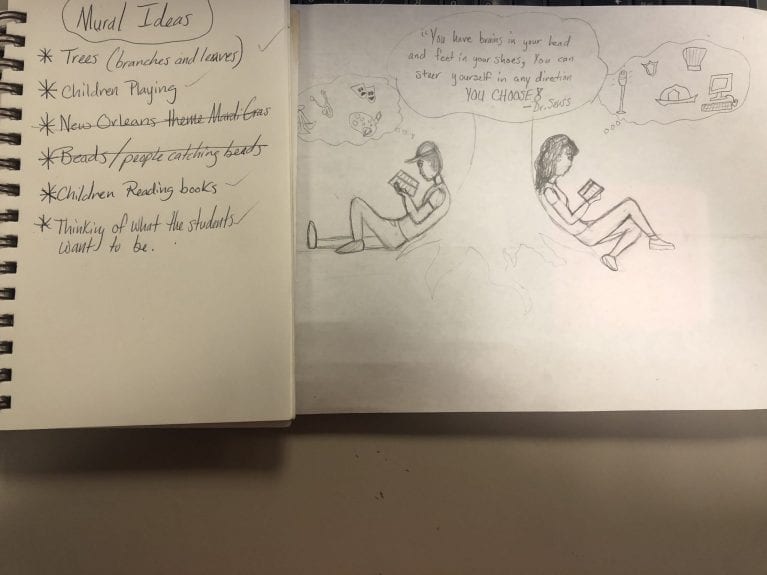 Mural Ideas
* Trees (branches and leaves)
* Children Playing
* New Orleans theme Mardi Gras
* Beads/people catching beads
* Children Reading books
* Thinking of what the students
want to be.
"You have brains in your head
and feet in your shoes, You can
steer yourself in any direction
YOU CHOOSE"
- Dr. Seuss